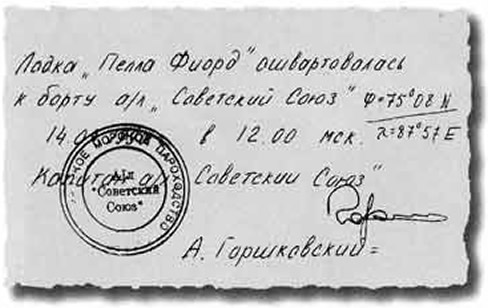 Лодка „Пелла Фиорд" ошвартовалась
к борту а/л „Советский Союз" φ=75°08 N
14.0 в 12.00 мск. λ=87°57 E
Капитан а/л „Советский Союз"
МОРСКОЕ ПАРОХОДСТВО
А/Л
"Советский
Союз"
А. Горшковский =